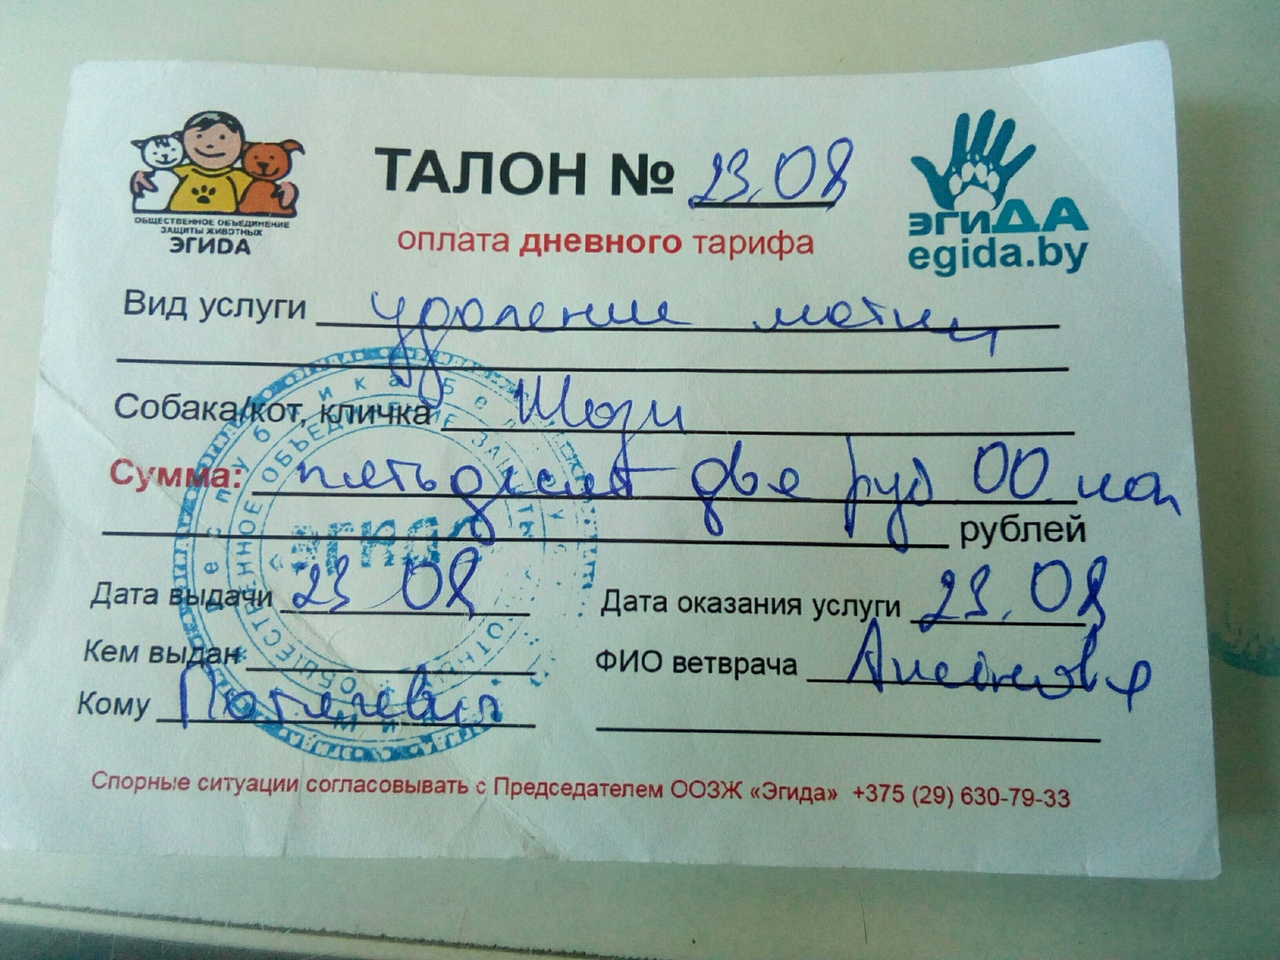 ОБЩЕСТВЕННОЕ ОБЪЕДИНЕНИЕ
ЗАЩИТЫ ЖИВОТНЫХ
ЭГИДА
ТАЛОН № 23.08
оплата дневного тарифа
эгиДА
egida.by
Вид услуги удаление матки
Собака/кот, кличка Шози
Сумма: пятьдесят две руб 00 коп
рублей
Дата выдачи 23 08
Дата оказания услуги 23.08
Кем выдан
ФИО ветврача
Кому
Спорные ситуации согласовывать с Председателем ООЗЖ «Эгида» +375 (29) 630-79-33
«ЭГИДА»